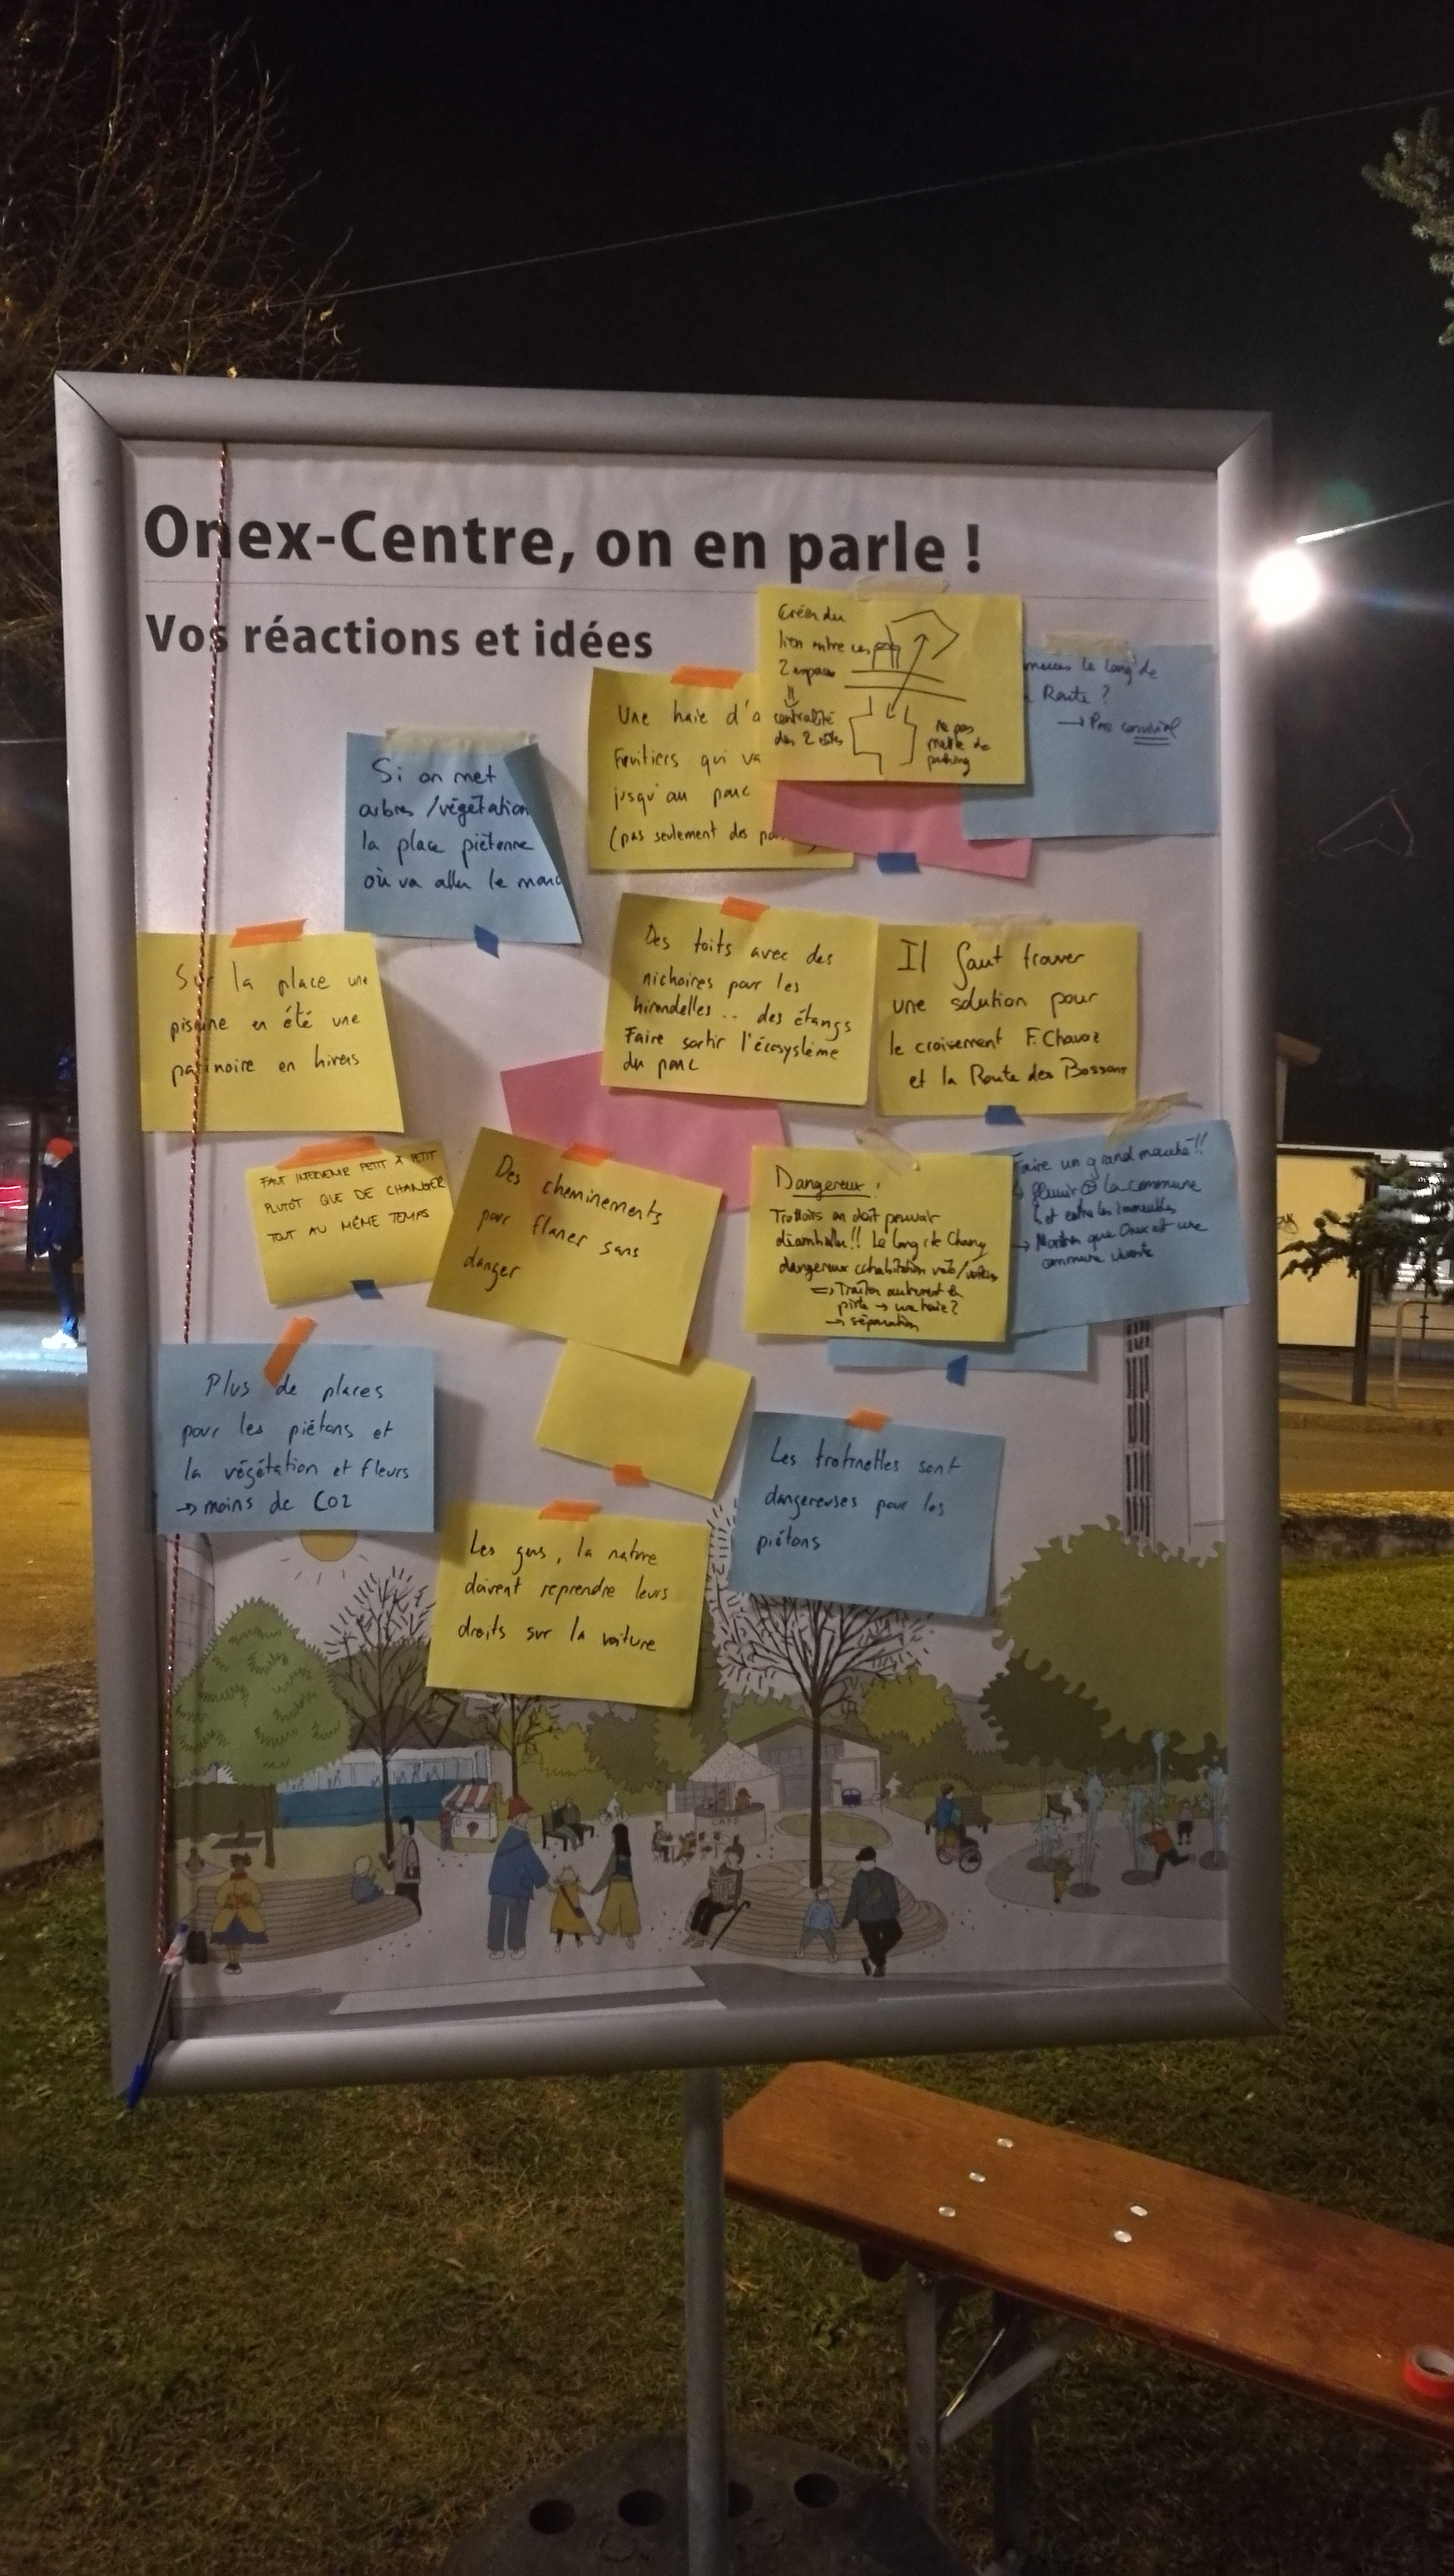 Onex-Centre, on en parle !
Vos réactions et idées
Créer du
lien entre ces
2 espaces
centralité
des 2 côtés
ne pas
mettre de
parking
le long de
Route ?
→ Pas convivial
Une haie d'a
fruitiers qui va
jusqu'au parc
(pas seulement des
Si on met
arbres /végétation
la place piétonne
où va aller le marc
Sur la place une
piscine en été une
patinoire en hivers
Des toits avec des
nichoires pour les
hirondelles .. des étangs
Faire sortir l'écosystème
du parc
Il faut trouver
une solution pour
le croisement F. Chavaz
et la Route des Bossons
FAUT INTERVENIR PETIT À PETIT
PLUTÔT QUE DE CHANGER
TOUT AU MÊME TEMPS
Des cheminements
pour flaner sans
danger
Dangereux !
Trottoirs on doit pouvoir
déambuler!! Le long de Chancy
dangereux cohabitation vélo/voitures
=> Traiter autrement la
piste → une haie?
→ séparation
Faire un grand marché!!
la commune
et entre les immeubles
→ Montrer que Onex est une
commune vivante
Plus de places
pour les piétons et
la végétation et fleurs
→ moins de CO2
Les trotinettes sont
dangereuses pour les
piétons
Les gens, la nature
doivent reprendre leurs
droits sur la voiture
CAFÉ